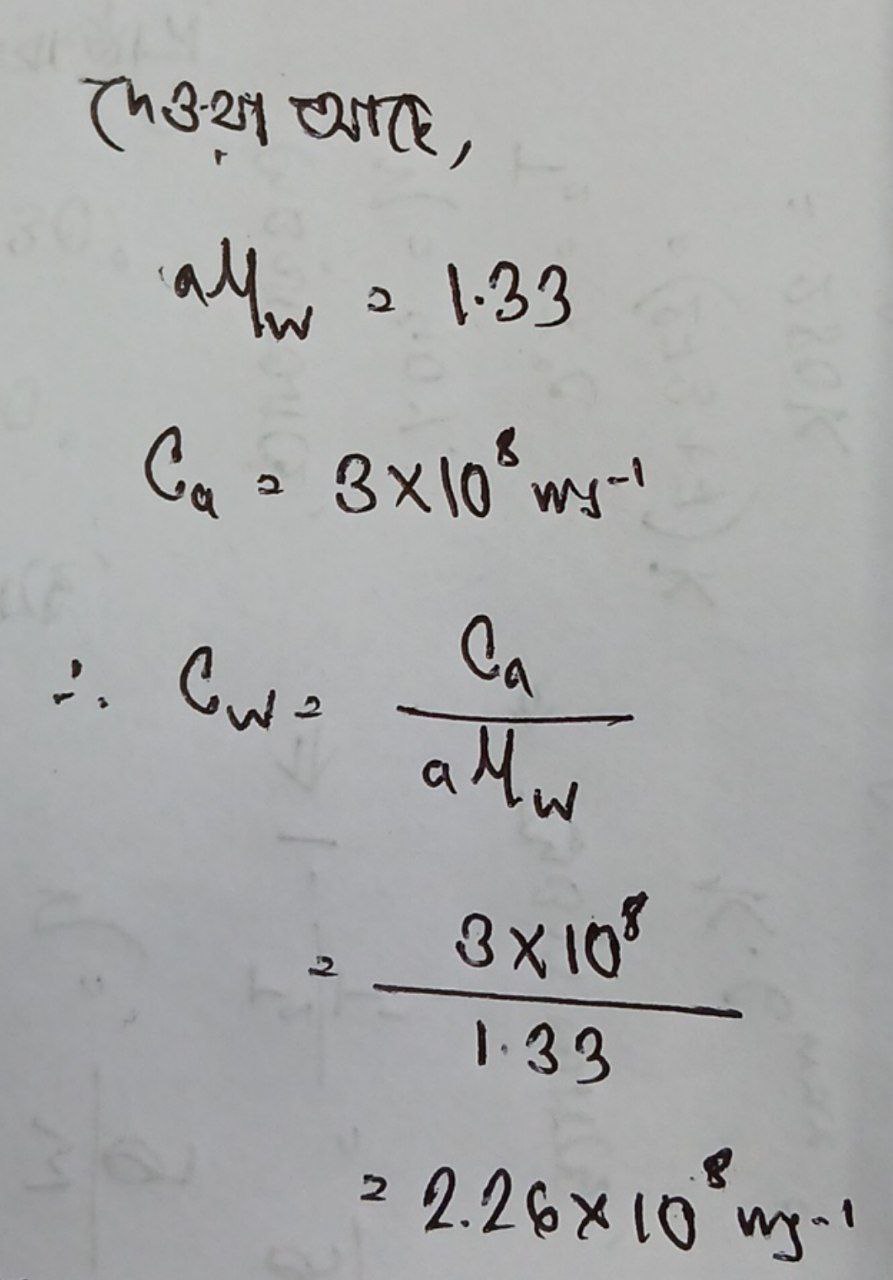 দেওয়া আছে,
aμw = 1.33
Ca = 3×10⁸ ms⁻¹
∴ Cw = Ca / aμw
= 3×10⁸ / 1.33
= 2.26×10⁸ ms⁻¹